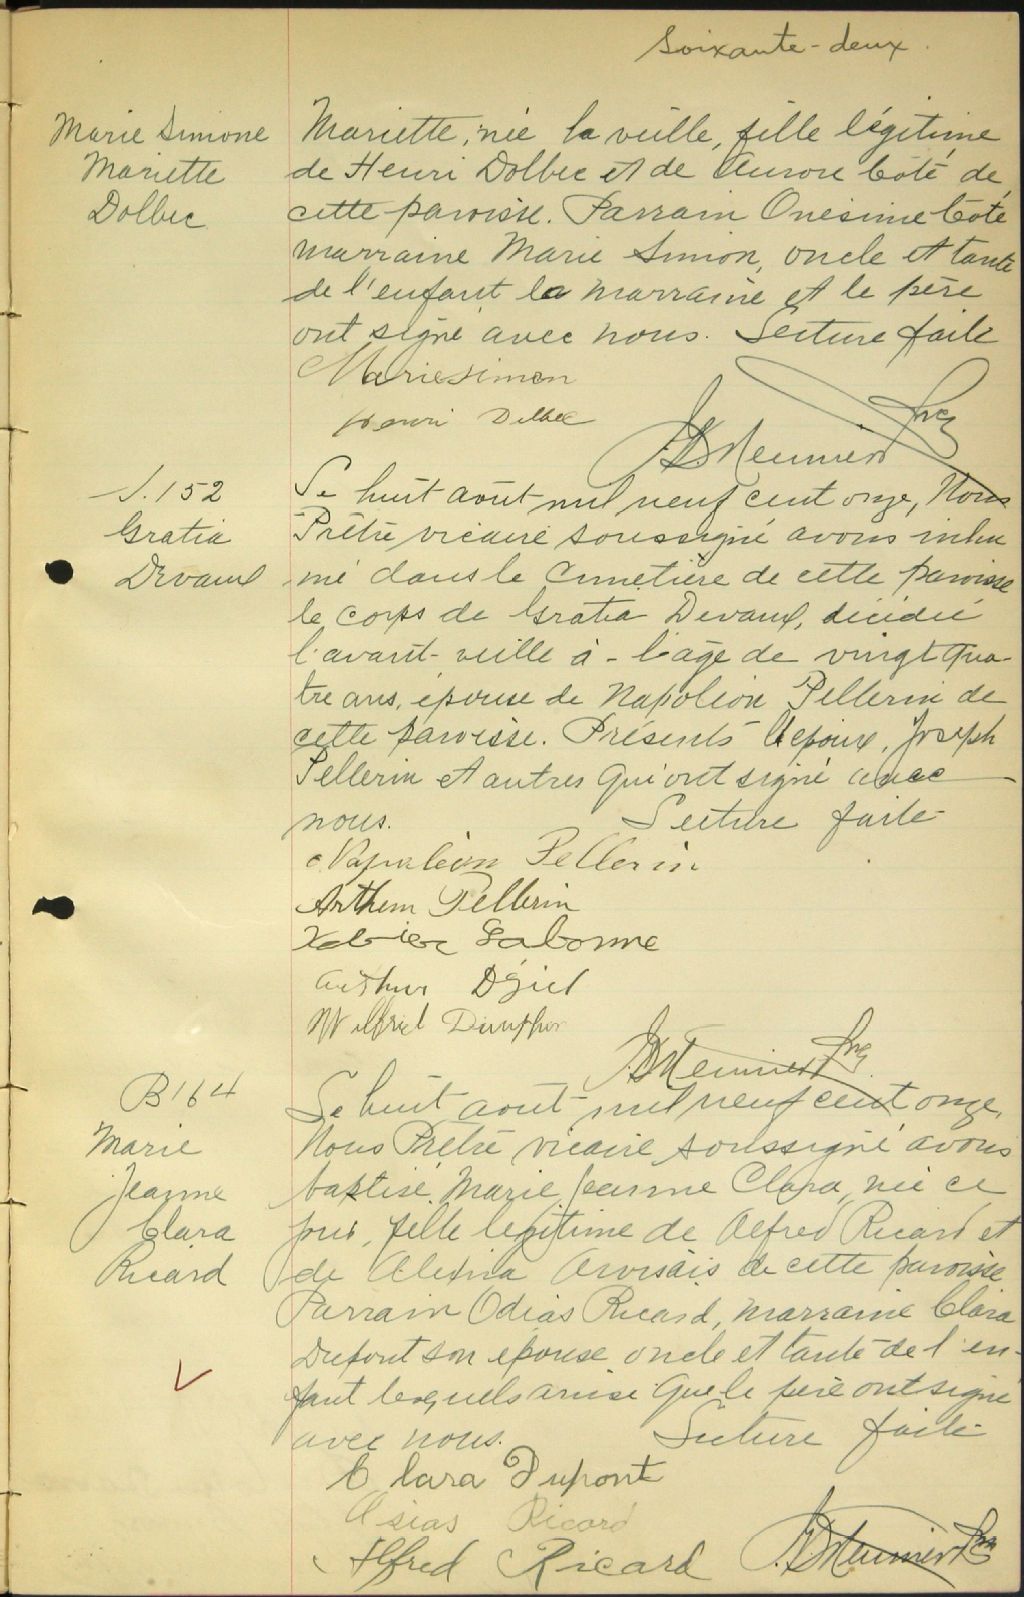 Soixante-deux.
Marie Simone
Mariette
Dolbec
Mariette, née la veille, fille légitime
de Henri Dolbec et de Aurore Côté de
cette paroisse. Parrain Onésime Côté
marraine Marie Simon, oncle et tante
de l'enfant la marraine et le père
ont signé avec nous. Lecture faite
Marie Simon
Henri Dolbec
Meunier Ptre
S. 152
Gratia
Devaux
Le huit août mil neuf cent onze, Nous
Prêtre vicaire soussigné avons inhu
mé dans le Cimetière de cette paroisse
le corps de Gratia Devaux, décédée
l'avant-veille à l'âge de vingt qua-
tre ans, épouse de Napoléon Pellerin de
cette paroisse. Présents l'époux, Joseph
Pellerin et autres qui ont signé avec
nous. Lecture faite
Napoléon Pellerin
Arthem Pellerin
Xavier Labonne
Arthur
Wilfrid
Meunier Ptre
B164
Marie
Jeanne
Clara
Ricard
Le huit août mil neuf cent onze,
Nous Prêtre vicaire soussigné avons
baptisé Marie Jeanne Clara, née ce
jour, fille légitime de Alfred Ricard et
de Alexina Arvisais de cette paroisse
Parrain Odias Ricard, marraine Clara
Dupont son épouse oncle et tante de l'en-
fant lesquels ainsi que le père ont signé
avec nous. Lecture faite
Clara Dupont
Osias Ricard
Alfred Ricard
Meunier Ptre